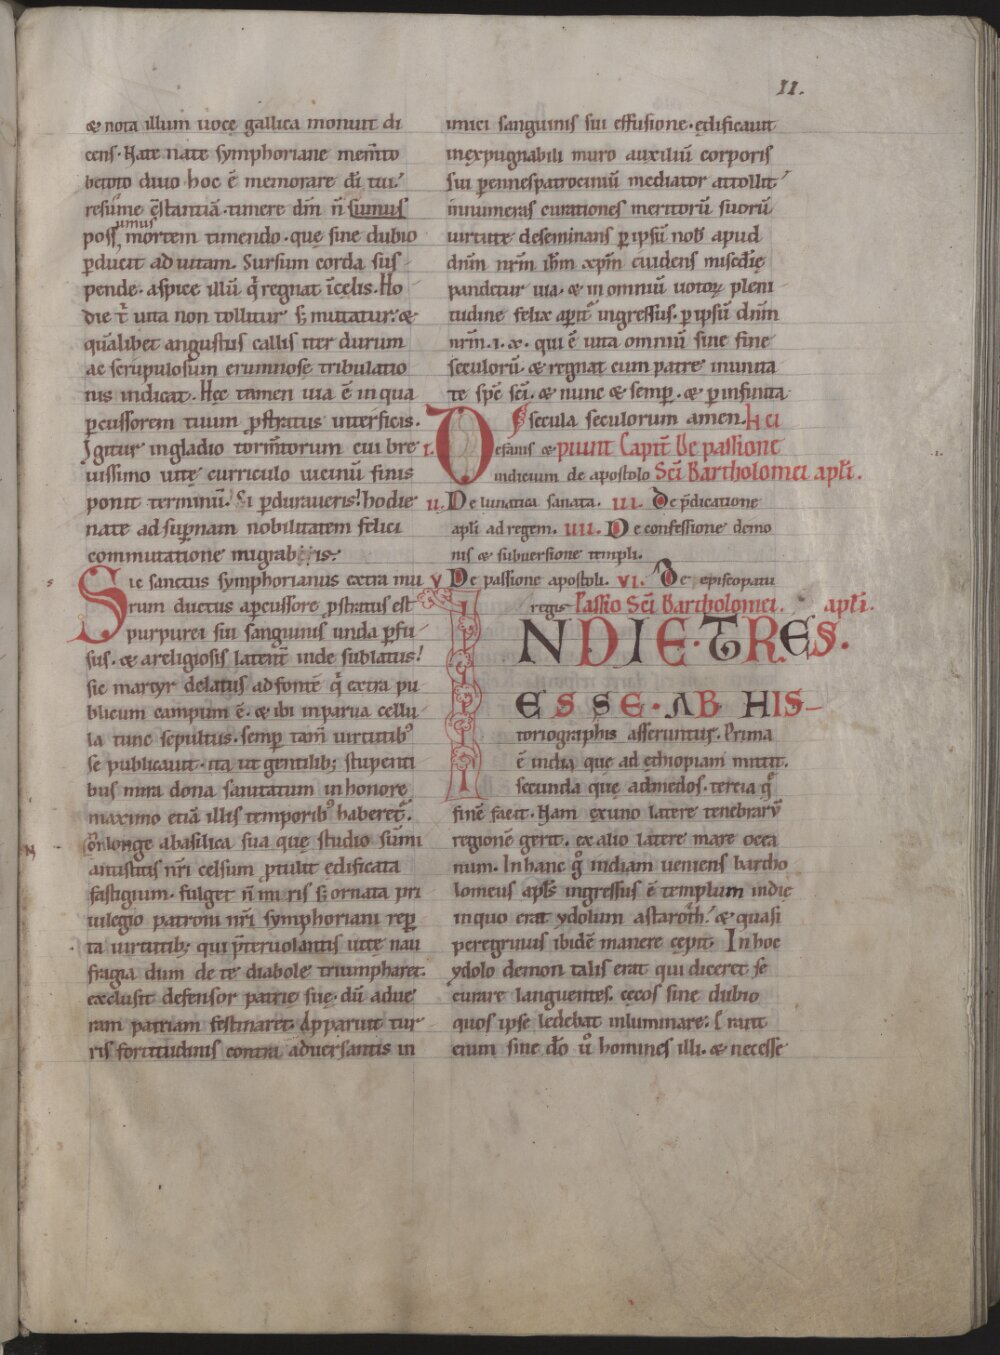 II.
& nota illum uocę gallica monuit di
cens. Nate nate symphoriane mem̅to
betoto diuo hoc ē memorare di̅ tui.
resūme c̅stantiā. timere dm̅ n̅ sumus
possumus mortem timendo. quę sine dubio
p̱ducit ad uitam. Sursum corda sus
pende. aspice illū q̅ regnat īcelis. Ho
die t̅ uita non tollitur s; mutatur. &
quālibet angustus callis iter durum
ac scrupulosum erumnose tribulatio
nis indicat. Hęc tamen uia ē in qua
p̱cussorem tuum p̱stratus interficis.
Igitur in gladio torm̅torum cui bre
uissimo uitę curriculo uicinū finis
ponit terminū. Si p̱duraueris! hodie
nate ad sup̱nam nobilitatem felici
commutatione migrabis.
Sic sanctus symphorianus extra mu
rum ductus ap̱cussore p̱stratus est
purpurei sui sanguinis unda p̱fu
sus. & areligiosis latent̅ inde sublatus!
sic martyr delatus ad fontē q̅ extra pu
blicum campum ē. & ibi inparua cellu
la tunc sepultus. semp̱ tam̅ uirtutib'
se publicauit. ita ut gentilib; stupenti
bus mira dona sanitatum in honore
maximo etiā illis temporib' haberet̅.
longe abasilica sua quę studio sūmi
antistitis nr̅i celsum p̱tulit edificata
fastigium. fulget n̅ muris s; ornata pri
uilegio patroni nr̅i symphoriani rep̱
ta uirtutib; qui p̅teruolantis uitę nau
fragia dum de te diabole triumpharet.
exclusit defensor patrie suę. dū adue
ram patriam festinaret. Op̱paruit tur
ris fortitudinis contra aduersantis in
imici sanguinis sui effusione. ędificauit
inexpugnabili muro auxiliū corporis
sui p̱ennespatrociniū mediator attollit
innumeras curationes meritorū suorū
uirtute deseminans p̱ ipsū nob̅ apud
dnm̅ nrm̅ ihm̅ xpm̅ euidens mise̅die
pandetur uia. & in omniū uotoꝝ pleni
tudine felix ap̱it̅ ingressus. p̱ ipsū dnm̅
nrm̅. i. x. qui ē uita omniū sine fine
seculorū. & regnat cum patre inunita
te spc̅ sci̅. & nunc & semp̱. & p̱ infinita
secula seculorum amen. Inci
I. Defanis & piunt Capit̅ De passione
indicium de apostolo Sc̅i Bartholomei apl̅i.
II. De lunatica sanata. III. De p̅dicatione
apl̅i ad regem. IIII. De confessione demo
nis & subuersione templi.
V De passione apostoli. VI. De episcopatu
regis Passio Sc̅i Bartholomei. apl̅i.
INDIE. TRES.
ESSE. AB HIS
toriographis asseruntur. Prima
ē india que ad ethiopiam mittit.
secunda quę admedos. tercia q̅
finē facit. Nam exuno latere tenebrarū
regionē gerit. ex alio latere mare occa
num. In hanc g̊ indiam ueniens bartho
lomeus apl̅s ingressus ē templum indie
inquo erat ydolum astaroth. & quasi
peregrinus ibidē manere cępit. In hoc
ydolo demon talis erat qui diceret se
curare languentes. cecos sine dubio
quos ipse ledebat inluminare. Erant
enim sine do̅ u̅ homines illi. & necesse